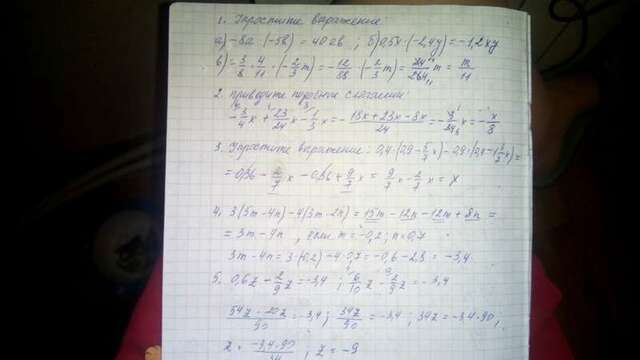 1. Упростите выражение
а) -8a·(-5в) = 40ав ; б) 0,5x·(-2,4y) = -1,2xy
в) = 3/8 · 4/11 · (-2/3 m) = -12/88 · (-2/3 m) = 24/264 m = m/11
2. Приведите подобные слагаемые:
-3/4 x + 23/24 x - 1/3 x = - 18x + 23x - 8x / 24 = -3/24 x = -x/8
3. Упростите выражение: 0,4·
= 0,36 - 2/7 x - 0,36 + 9/7 x = 9/7 x - 2/7 x = x
4. 3(5m-4n)-4(3m-2n) = 15m - 12n - 12m + 8n =
= 3m - 4n , если m = -0,2; n = 0,7
3m - 4n = 3·(-0,2) - 4·0,7 = -0,6 - 2,8 = -3,4
5. 0,6z - 2/9 z = -3,4 ; 6/10 z - 2/9 z = -3,4
54z - 20z / 90 = -3,4 ; 34z/90 = -3,4 ; 34z = -3,4·90,
z = -3,4·90/34 ; z = -9